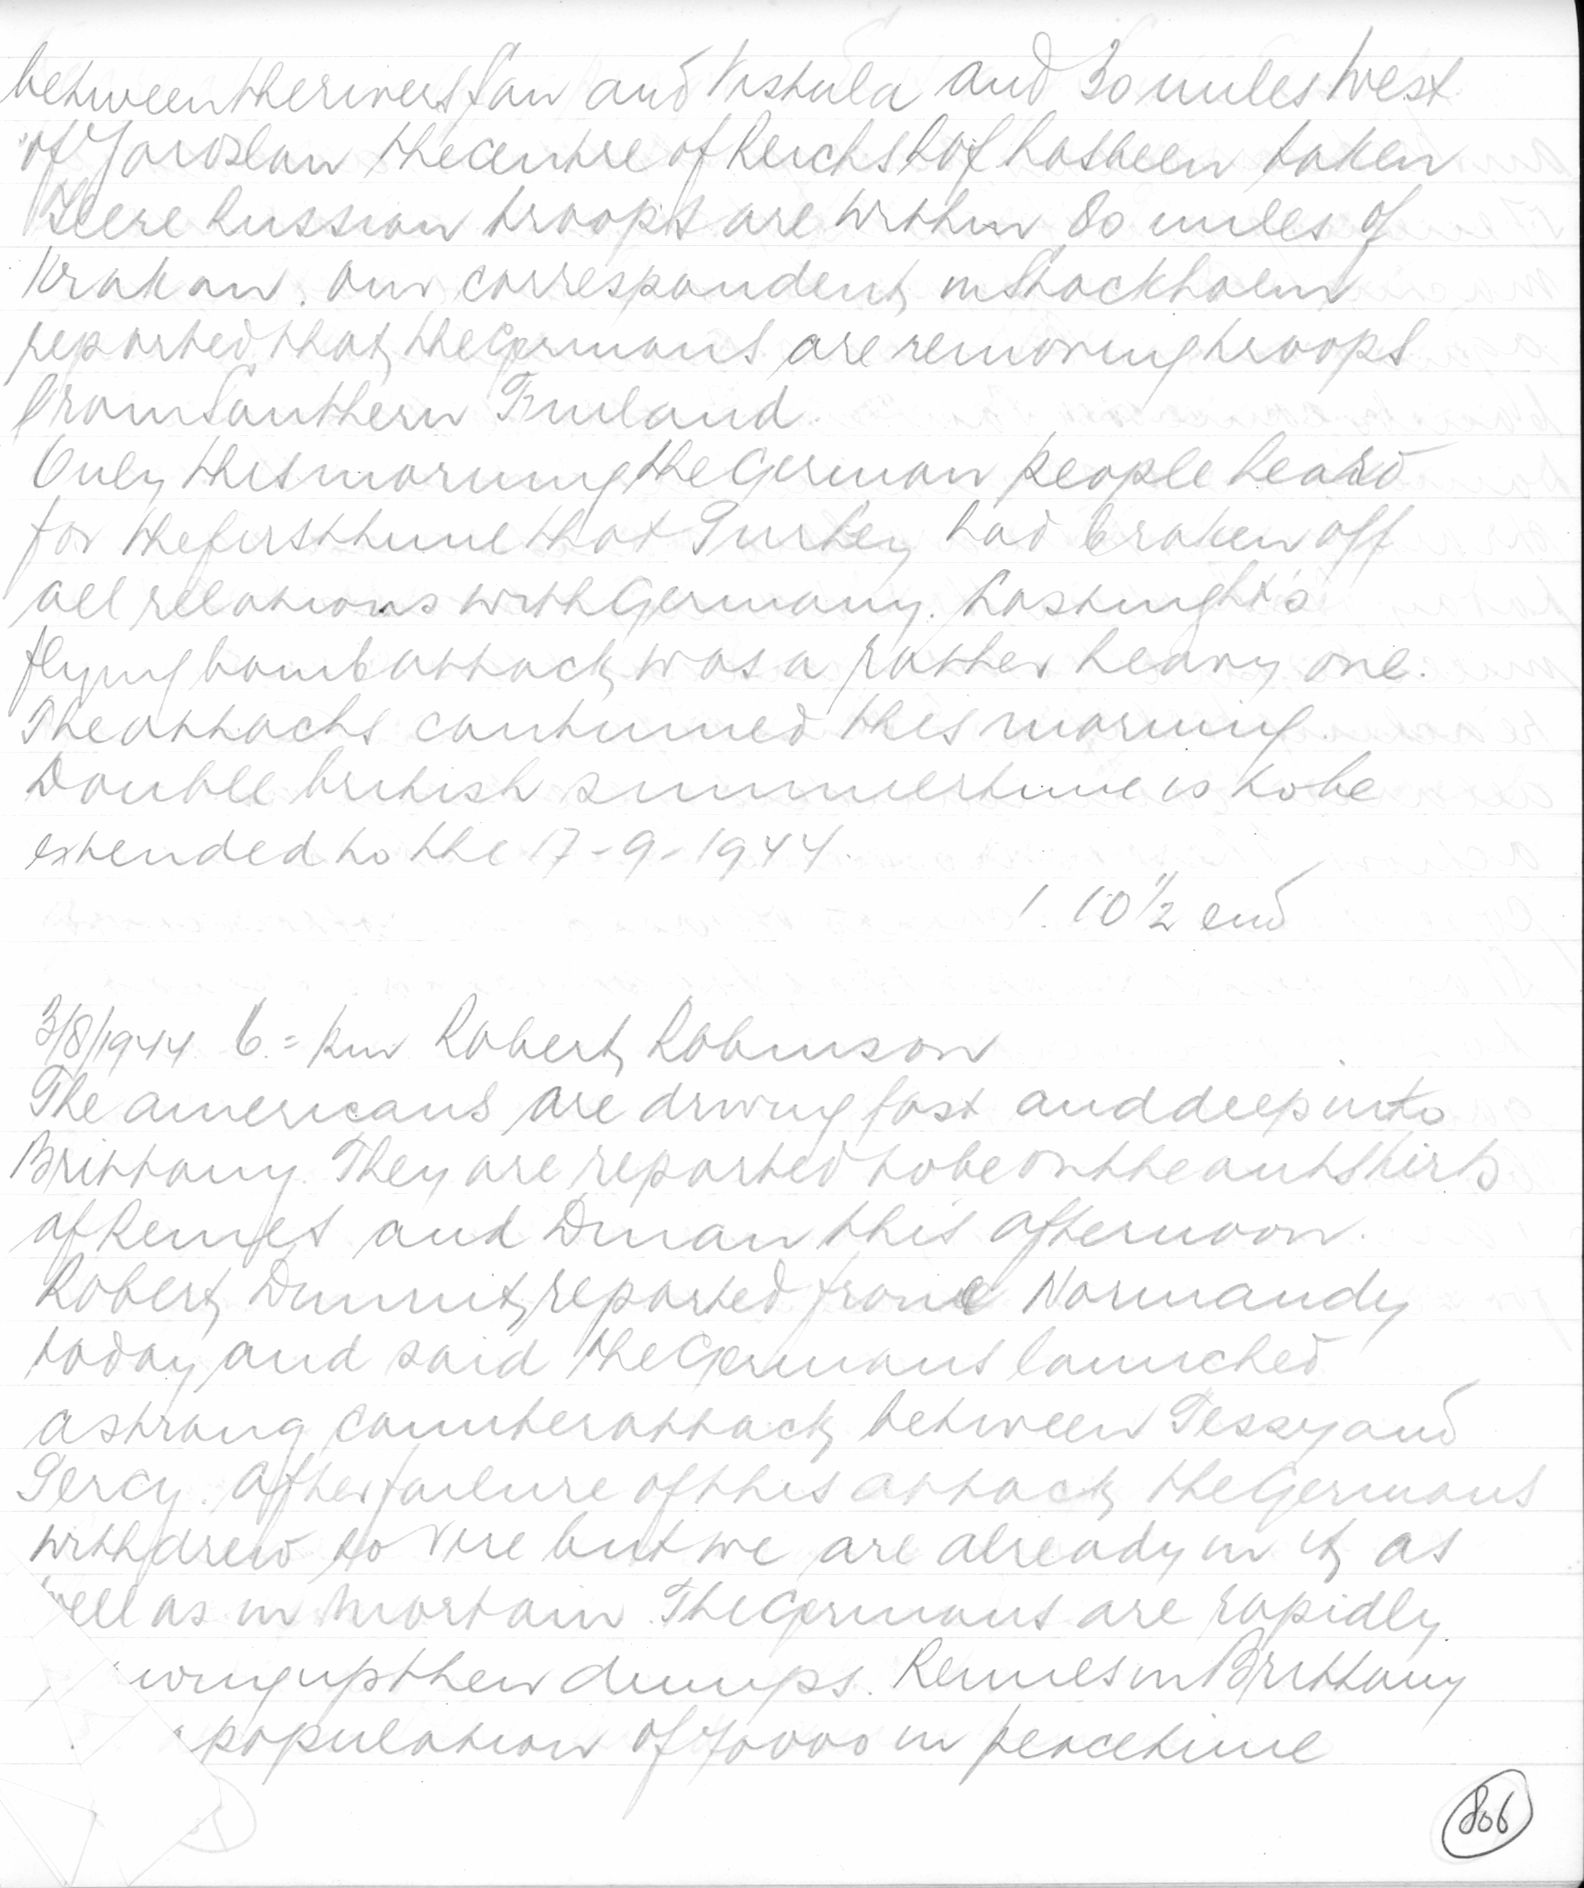 between the rivers San and Vistula and 30 miles West
of Jaroslau the centre of Reichshof has been taken
Here Russian troops are within 80 miles of
Krakau. Our correspondent in Stockholm
reported that the Germans are removing troops
from Southern Finland.
Only this morning the German people heard
for the first time that Turkey had broken off
all relations with Germany. Last night's
flying bomb attack was a rather heavy one.
The attacks continued this morning.
Double british summertime is to be
extended to the 17-9-1944.
1. 10 1/2 end
3/8/1944 6 = Robert Robinson
The americans are driving fast and deep into
Brittany. They are reported to be on the outskirts
of Rennes and Dinan this afternoon.
Robert Dunnit reported from Normandy
today and said the Germans launched
a strong counterattack between Tessy and
Percy. After failure of this attack the Germans
withdrew to Vire but we are already in it as
well as in Mortain. The Germans are rapidly
wing up their dumps. Rennes in Brittany
population of 70000 in peacetime
806